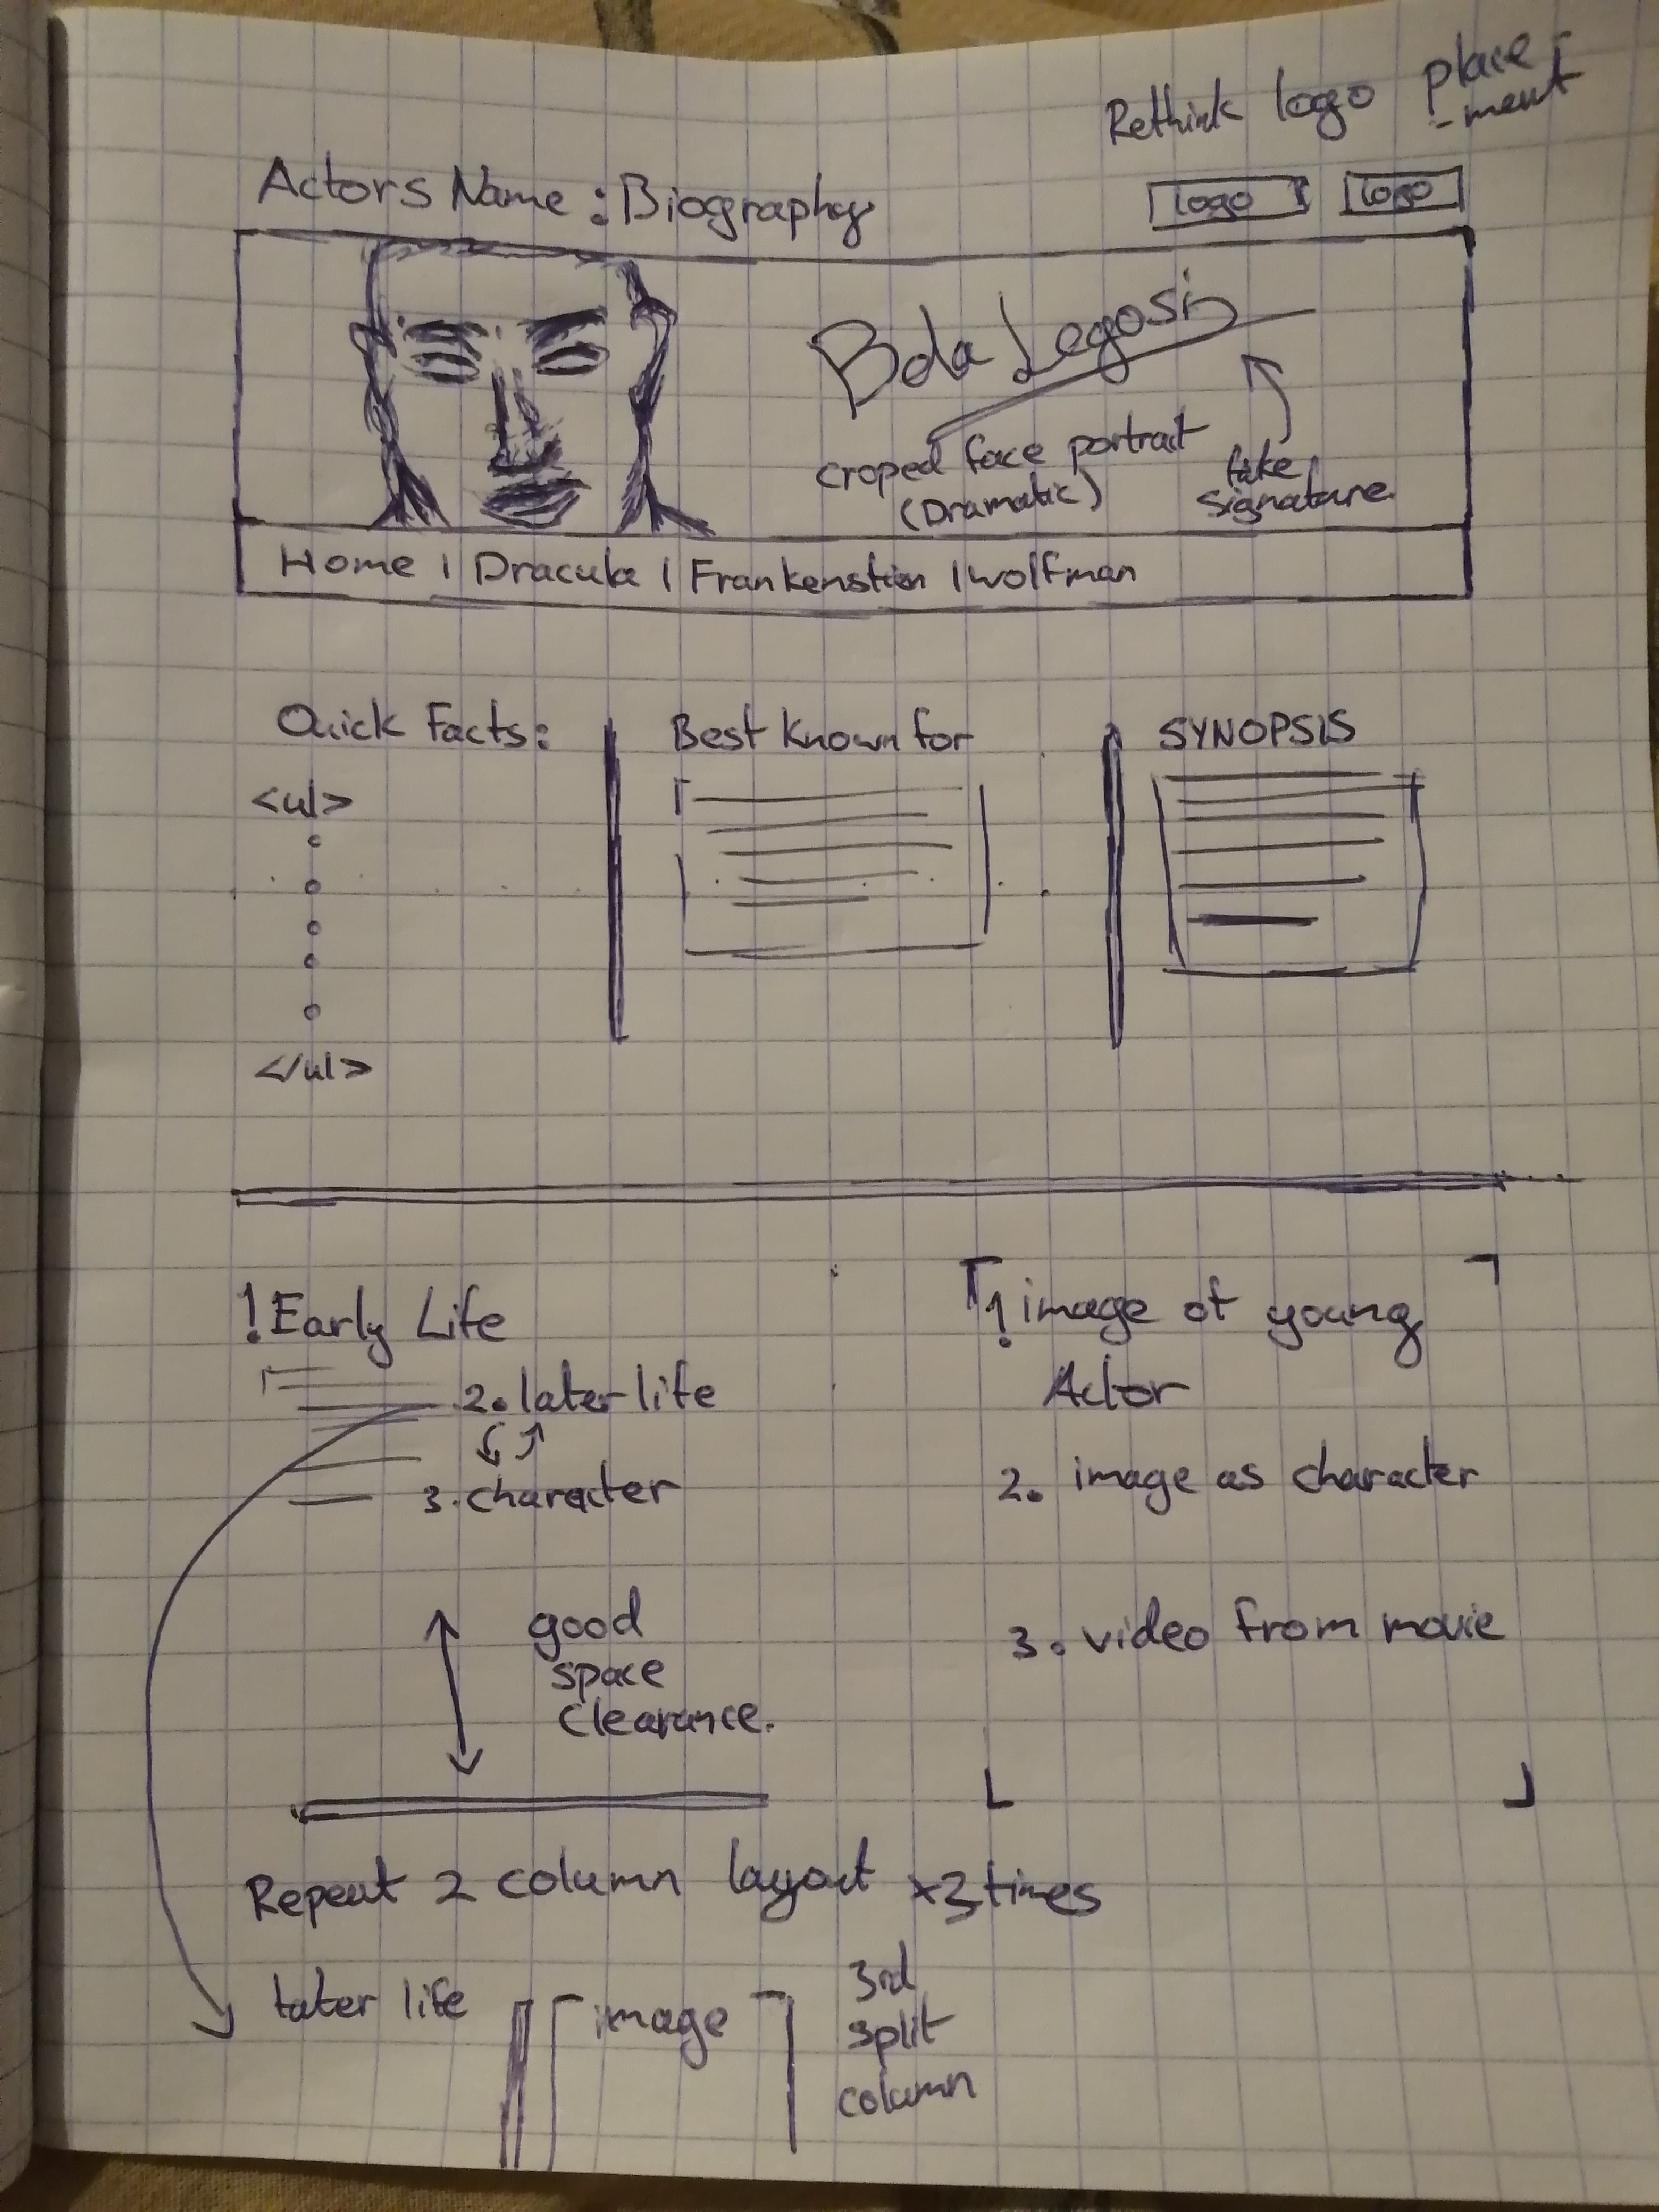 Rethink logo place
-ment
Actors Name : Biography
logo logo
Bela Legosi
croped face portrait
(Dramatic)
fake
signature
Home | Dracula | Frankenstien | wolfman
Quick Facts:
<ul>
</ul>
Best Known for
SYNOPSIS
! Early Life
2. later life
3. character
good
space
clearance.
1 image of young
Actor
2. image as character
3. video from movie
Repeat 2 column layout x3 times
later life
image
3rd
split
column